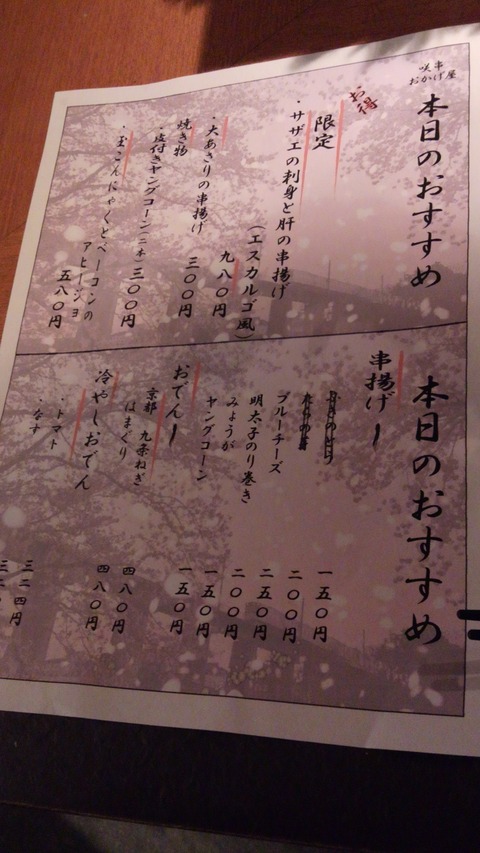 咲串
おかげ屋
本日のおすすめ
お得
限定
・サザエの刺身と肝の串揚げ
(エスカルゴ風)
九八〇円
・大あさりの串揚げ
三〇〇円
焼き物
・皮付きヤングコーン二本 三〇〇円
・玉こんにゃくとベーコンの
アヒージョ
五八〇円
本日のおすすめ
串揚げ
ふきのとう 一五〇円
たけのこ 二〇〇円
ブルーチーズ 二五〇円
明太子のり巻き 二〇〇円
みょうが 一五〇円
ヤングコーン 一五〇円
おでん
京都 九条ねぎ 四八〇円
はまぐり 四八〇円
冷やしおでん
・トマト 三二四円
・なす